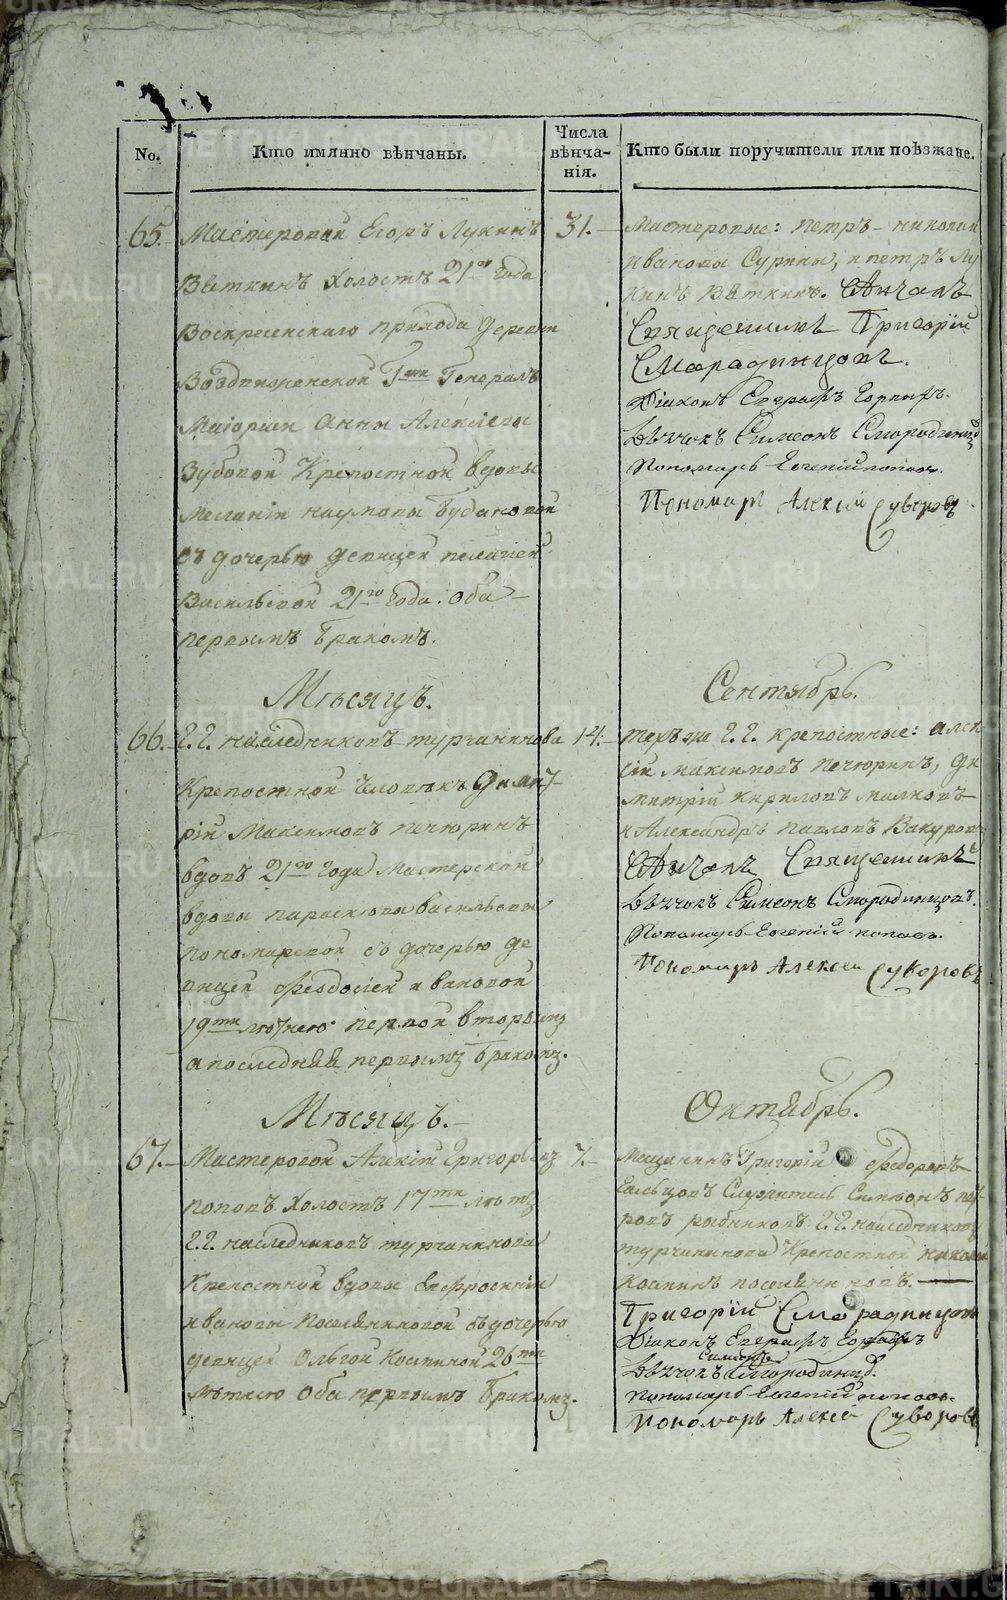 No.
Кто имянно вѣнчаны.
Числа
вѣнча-
нія.
Кто были поручители или поѣзжане.
65.
Мастеровой Егоръ Лукинъ
Вяткинъ холостъ 21го года
Воскресенскаго прихода деревни
Воздвиженской Г-жи Генералъ
Маіорши Анны Алексѣевы
Зубовой Крепостной вдовы
Меланіи Наумовы Будановой
съ дочерью девицей пелагіей
Васильевой 21го года. Оба
первымъ бракомъ.
31.-
Мастеровые: петръ - николай
ивановы Сурины, и петръ Лу
кинъ Вяткинъ.
Священникъ Григорій
Смарадинцовъ.
Діаконъ Евграфъ
Дьячокъ Симеонъ Смородинцо
Пономарь Евгеній попов.
Пономарь Алексій Суворовъ
Мѣсяцъ.
Сентябрь.
66.-
Г.Г. наследниковъ турчанинова
Крепостной человѣкъ Димит-
рій Максимовъ печюринъ
вдовъ 21го года Мастерской
вдовы параскювы васильевы
пономаревой съ дочерью де
вицей Феодосіей ивановой
19ти лѣтнею. первой вторымъ
а последняя первымъ бракомъ.
14.-
техъ же Г.Г. крепостные: алек
сій максимовъ печюринъ, ди
митрій кириловъ малковъ
и Александръ павловъ Вакуровъ
Священникъ
Дьячокъ Симеонъ Смородинцовъ.
Пономарь Евгеній попов.
Пономарь Алексей Суворовъ
Мѣсяцъ.-
Октябрь.
67.-
Мастеровой Алексій Григорьевъ
поповъ холостъ 17ти лѣтъ
Г.Г. наследниковъ турчанинова
Крепостной вдовы Евфросиніи
ивановы поселяниновой съ дочерью
девицей Ольгой Косминой 26ти
лѣтнею Оба первымъ бракомъ.
7.-
Мещанинъ Григорій Федоровъ
Ельцовъ Служитель Симеонъ пет
ровъ рыбниковъ Г.Г. наследниковъ
турчанинова Крепостной николай
косминъ поселяниновъ.
Григорій Смарадинцовъ
Діаконъ Евграфъ
Симеонъ
Дьячокъ Смородинцо.
Пономарь Евгеній попов.
Пономарь Алексей Суворовъ
METRIKI.GASO-URAL.RU